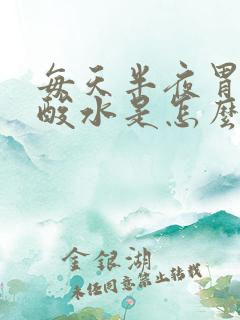 每天半夜胃
酸水是怎麽
金银湖
未经同意禁止转载